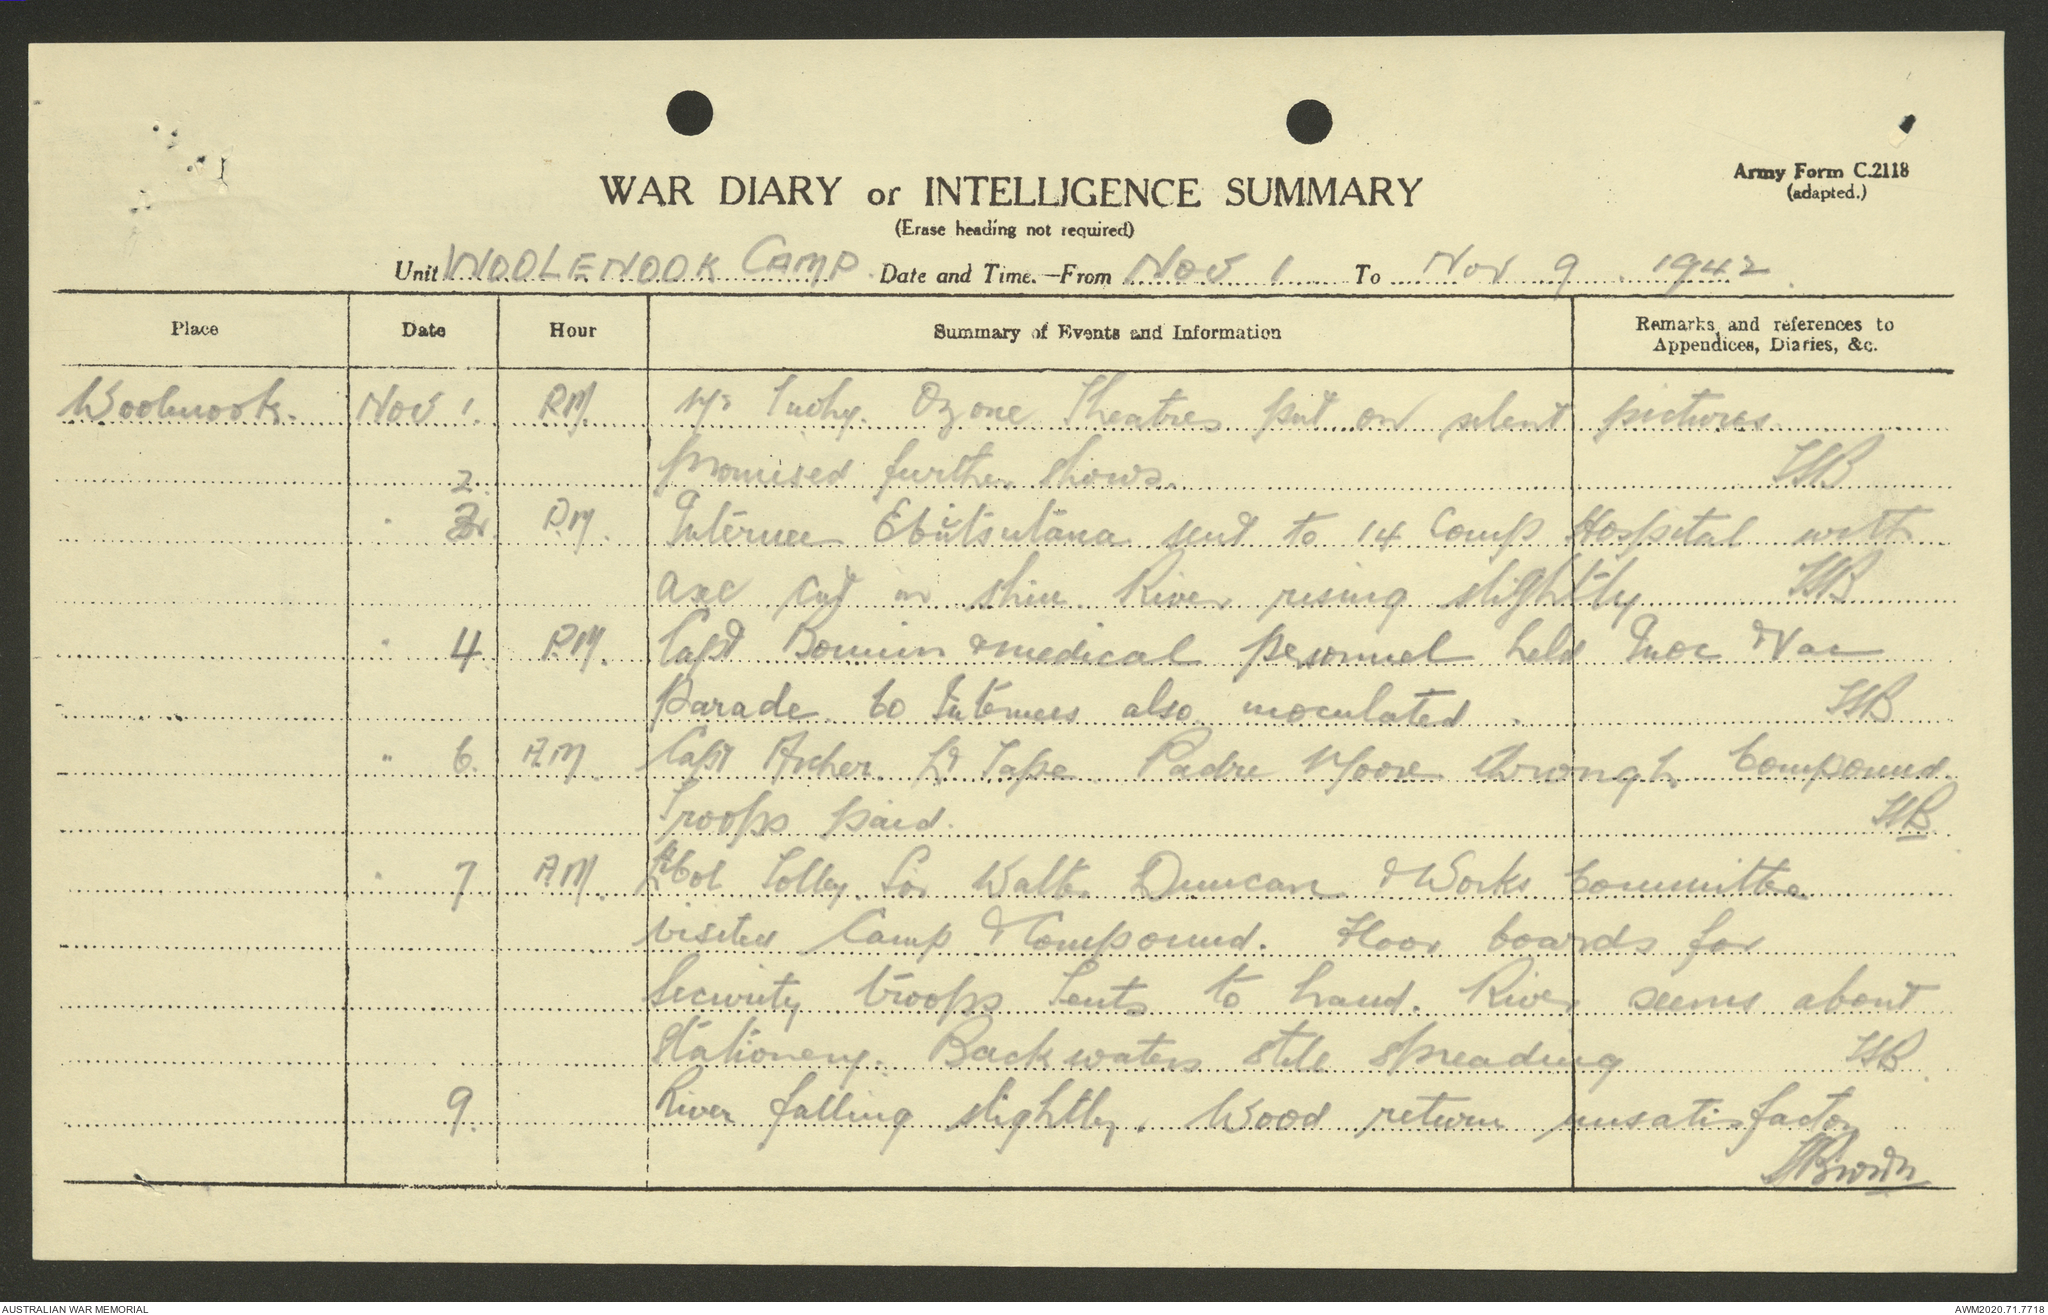 Army Form C.2118
(adapted.)
WAR DIARY or INTELLIGENCE SUMMARY
(Erase heading not required)
Unit WOOLENOOK CAMP. Date and Time.—From Nov 1 To Nov 9. 1942.
Place Date Hour Summary of Events and Information Remarks and references to Appendices, Diaries, &c.
Woolenook. Nov 1. P.M. Mr Tuohy. Ozone Theatres put on silent pictures
promised further shows.
2. P.M. Internee sent to 14 Camp Hospital with
axe cut on shin. River rising slightly
" 4 P.M. Capt & medical personnel held Inoc & Vac
Parade. 60 Internees also inoculated.
" 6. A.M. Capt Archer. Lt Tape Padre Moore through Compound.
Troops paid.
" 7 A.M. Lt Col Tolley. Sir Walter Duncan & Works Committee
visited Camp & Compound. Floor boards for
Security troops tents to hand. River seems about
Stationery. Backwaters still spreading
9. River falling slightly. Wood return unsatisfactory
Brown
AUSTRALIAN WAR MEMORIAL
AWM2020.71.7718